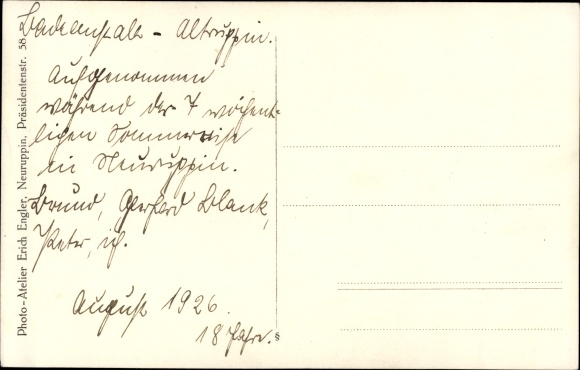 Badeanstalt - Altruppin.
Aufgenommen
während der 7 wöchent-
lichen Sommerreise
in Neuruppin.
Bruno, Gerhard Blank,
Peter, ich.
August 1926.
18 Jahre.
Photo-Atelier Erich Engler, Neuruppin, Präsidentenstr. 58